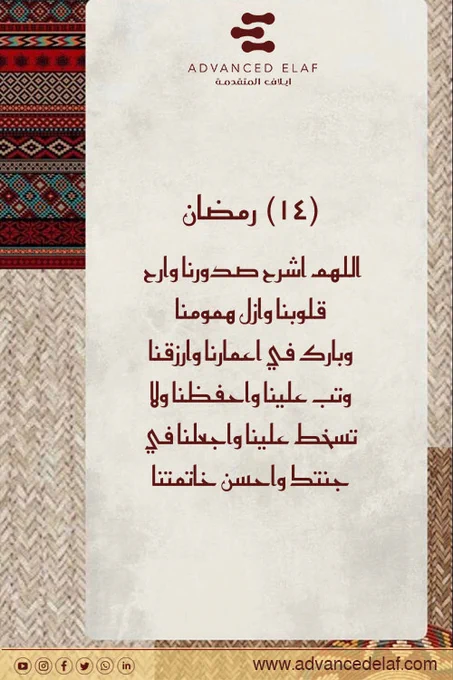 ADVANCED ELAF
ايلاف المتقدمة
(١٤) رمضان
اللهم اشرح صدورنا وارح
قلوبنا وازل همومنا
وبارك في اعمارنا وارزقنا
وتب علينا واحفظنا ولا
تسخط علينا واجعلنا في
جنتك واحسن خاتمتنا
www.advancedelaf.com